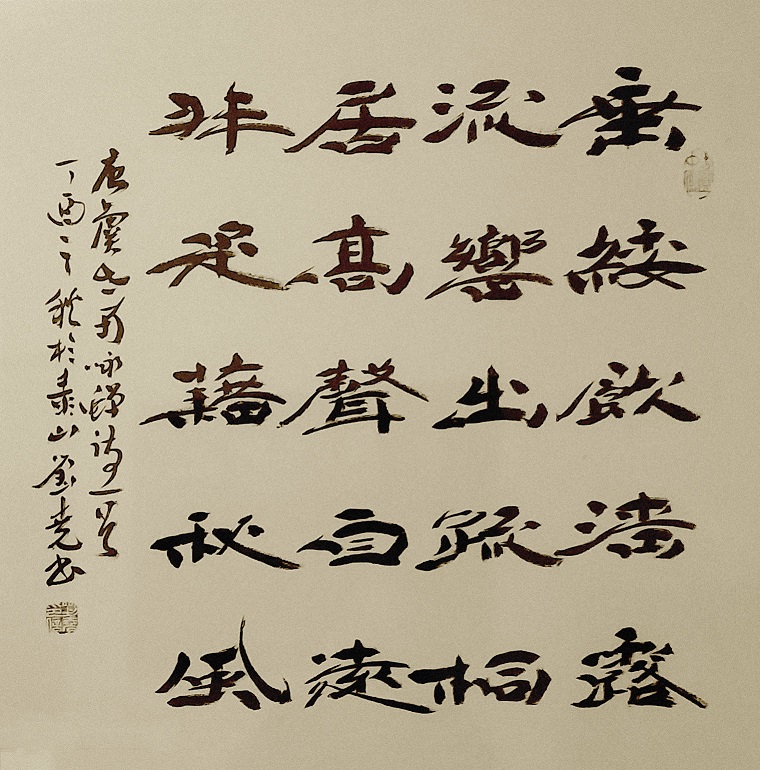 垂緌飲清露
流響出疏桐
居高聲自遠
非是藉秋風
唐虞世南咏蟬詩一首
丁酉之秋於泰山劉堯书